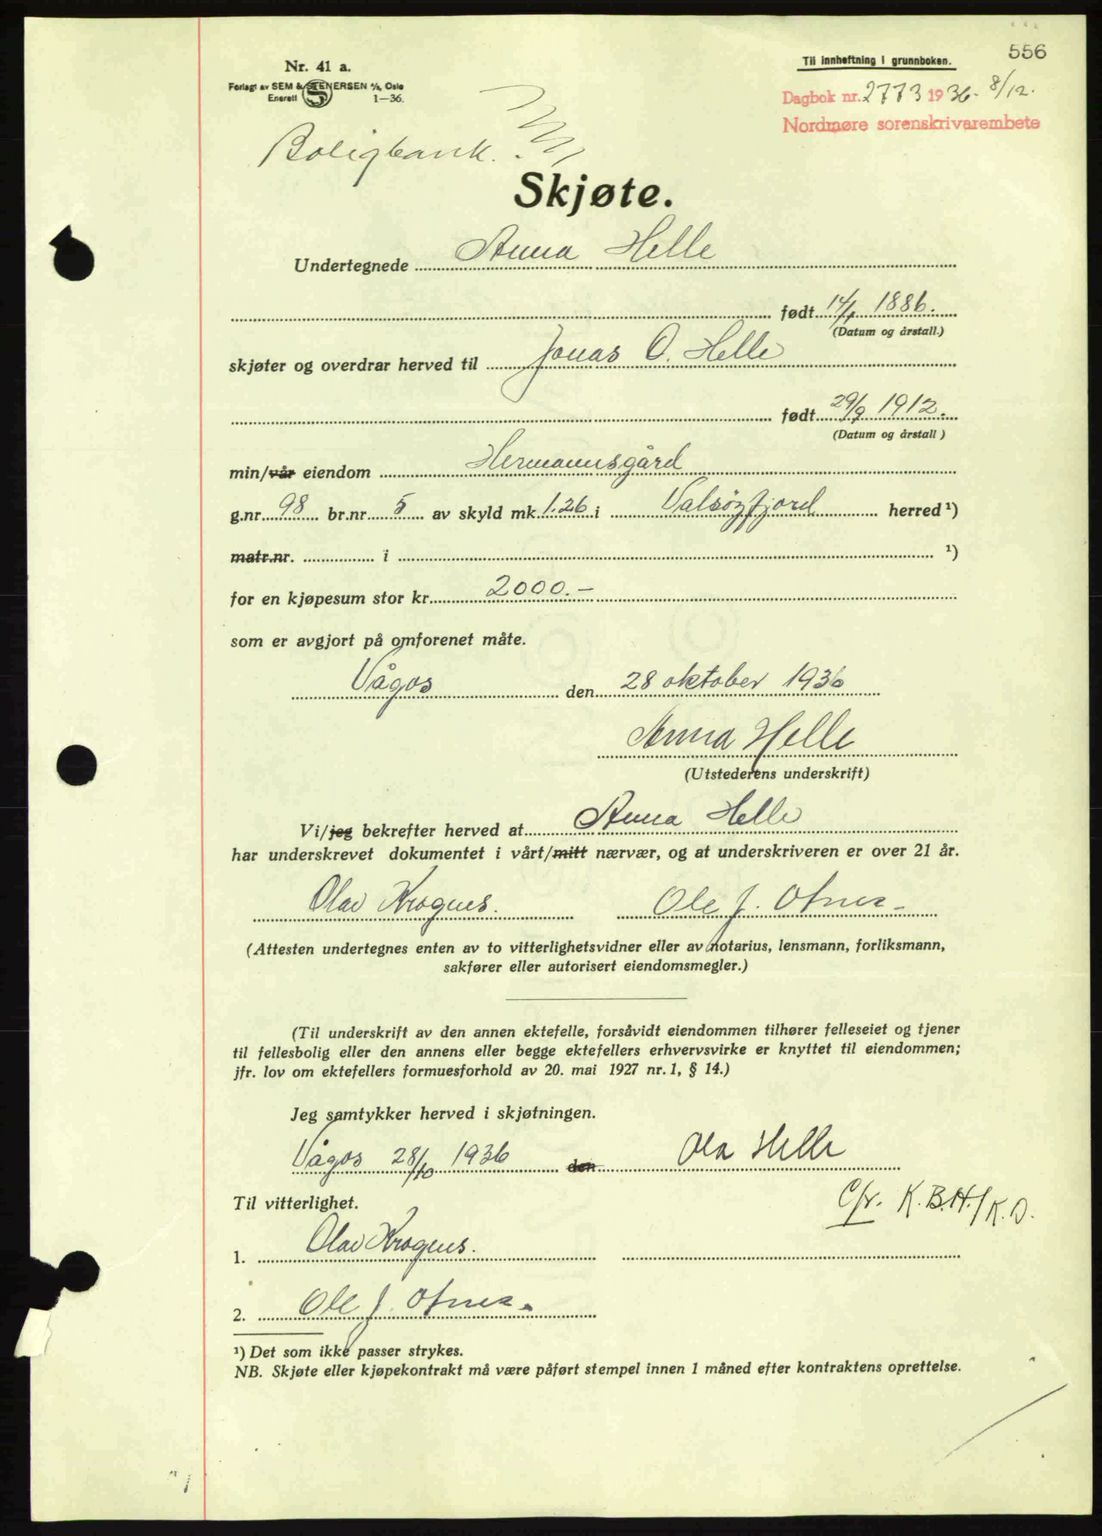 556
Til innheftning i grunnboken.
Nr. 41 a.
Forlagt av SEM & STENERSEN A/S, Oslo
Enerett 1—36.
Dagbok nr. 2773 1936. 8/12.
Nordmøre sorenskrivarembete
Boligbank.
Skjøte.
Undertegnede Anna Helle
født 14/1 1886.
(Datum og årstall.)
skjøter og overdrar herved til Jonas O. Helle
født 29/9 1912.
(Datum og årstall)
min/vår eiendom Hermannsgård
g.nr. 98 br.nr. 5 av skyld mk. 1.26 i Valsøyfjord herred ¹)
matr.nr. i ¹)
for en kjøpesum stor kr. 2000.-
som er avgjort på omforenet måte.
Vågos den 28 oktober 1936
Anna Helle
(Utstederens underskrift)
Vi/jeg bekrefter herved at Anna Helle
har underskrevet dokumentet i vårt/mitt nærvær, og at underskriveren er over 21 år.
Olav Krognes. Ole J. Otnes
(Attesten undertegnes enten av to vitterlighetsvidner eller av notarius, lensmann, forliksmann,
sakfører eller autorisert eiendomsmegler.)
(Til underskrift av den annen ektefelle, forsåvidt eiendommen tilhører felleseiet og tjener
til fellesbolig eller den annens eller begge ektefellers erhvervsvirke er knyttet til eiendommen;
jfr. lov om ektefellers formuesforhold av 20. mai 1927 nr. 1, § 14.)
Jeg samtykker herved i skjøtningen.
Vågos 28/10 1936 den Ola Helle
Til vitterlighet.
Cfr. K.B.H./K.D.
1. Olav Krognes.
2. Ole J. Otnes.
¹) Det som ikke passer strykes.
NB. Skjøte eller kjøpekontrakt må være påført stempel innen 1 måned efter kontraktens oprettelse.